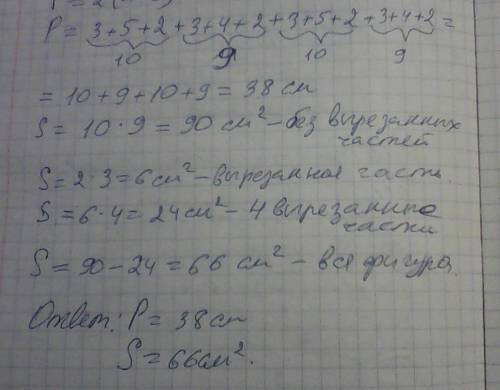 P = 3+5+2 + 3+4+2 + 3+5+2 + 3+4+2 =
10 9 10 9
= 10+9+10+9 = 38 см
S = 10·9 = 90 см² – без вырезанных
частей
S = 2·3 = 6 см² – вырезанная часть.
S = 6·4 = 24 см² – 4 вырезанные
части
S = 90 – 24 = 66 см² – вся фигура.
Ответ: P = 38 см
S = 66 см².